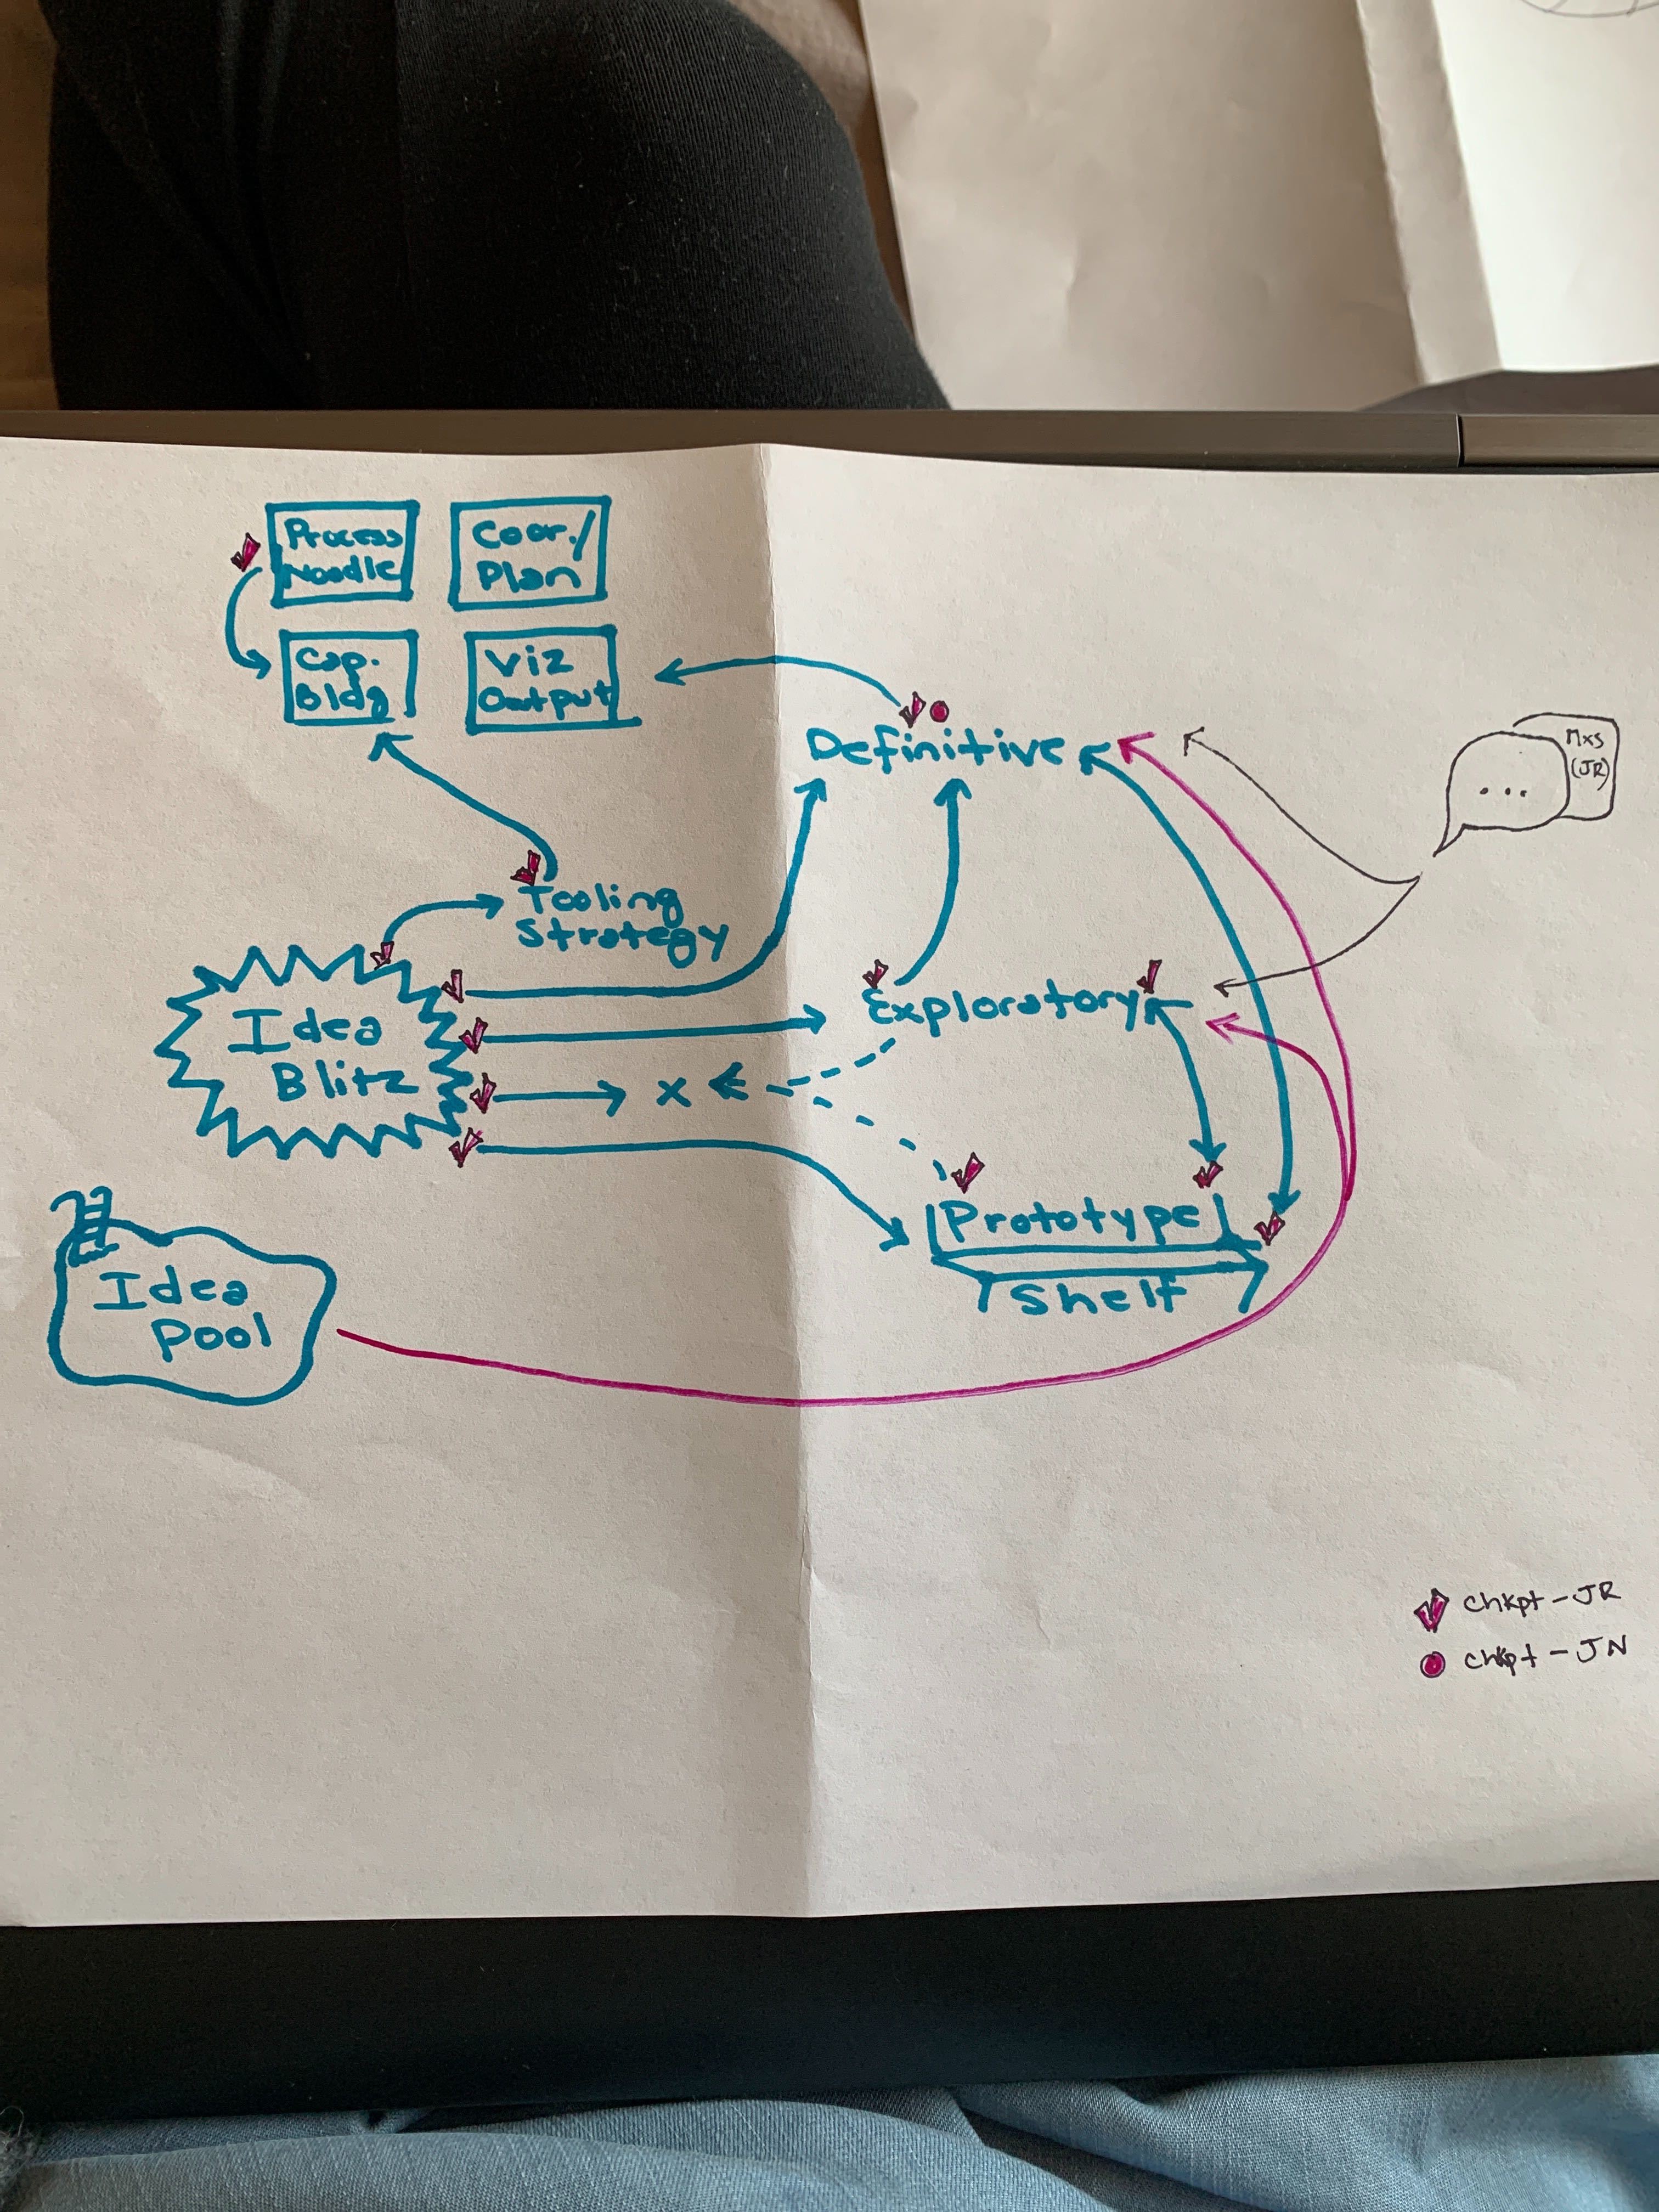 Process
Noodle
Coor./
Plan
Cap.
Bldg
Viz
Output
Definitive
Mxs
(JR)
...
Tooling
Strategy
Idea
Blitz
Exploratory
x
Prototype
Shelf
Idea
Pool
chkpt - JR
chkpt - JN